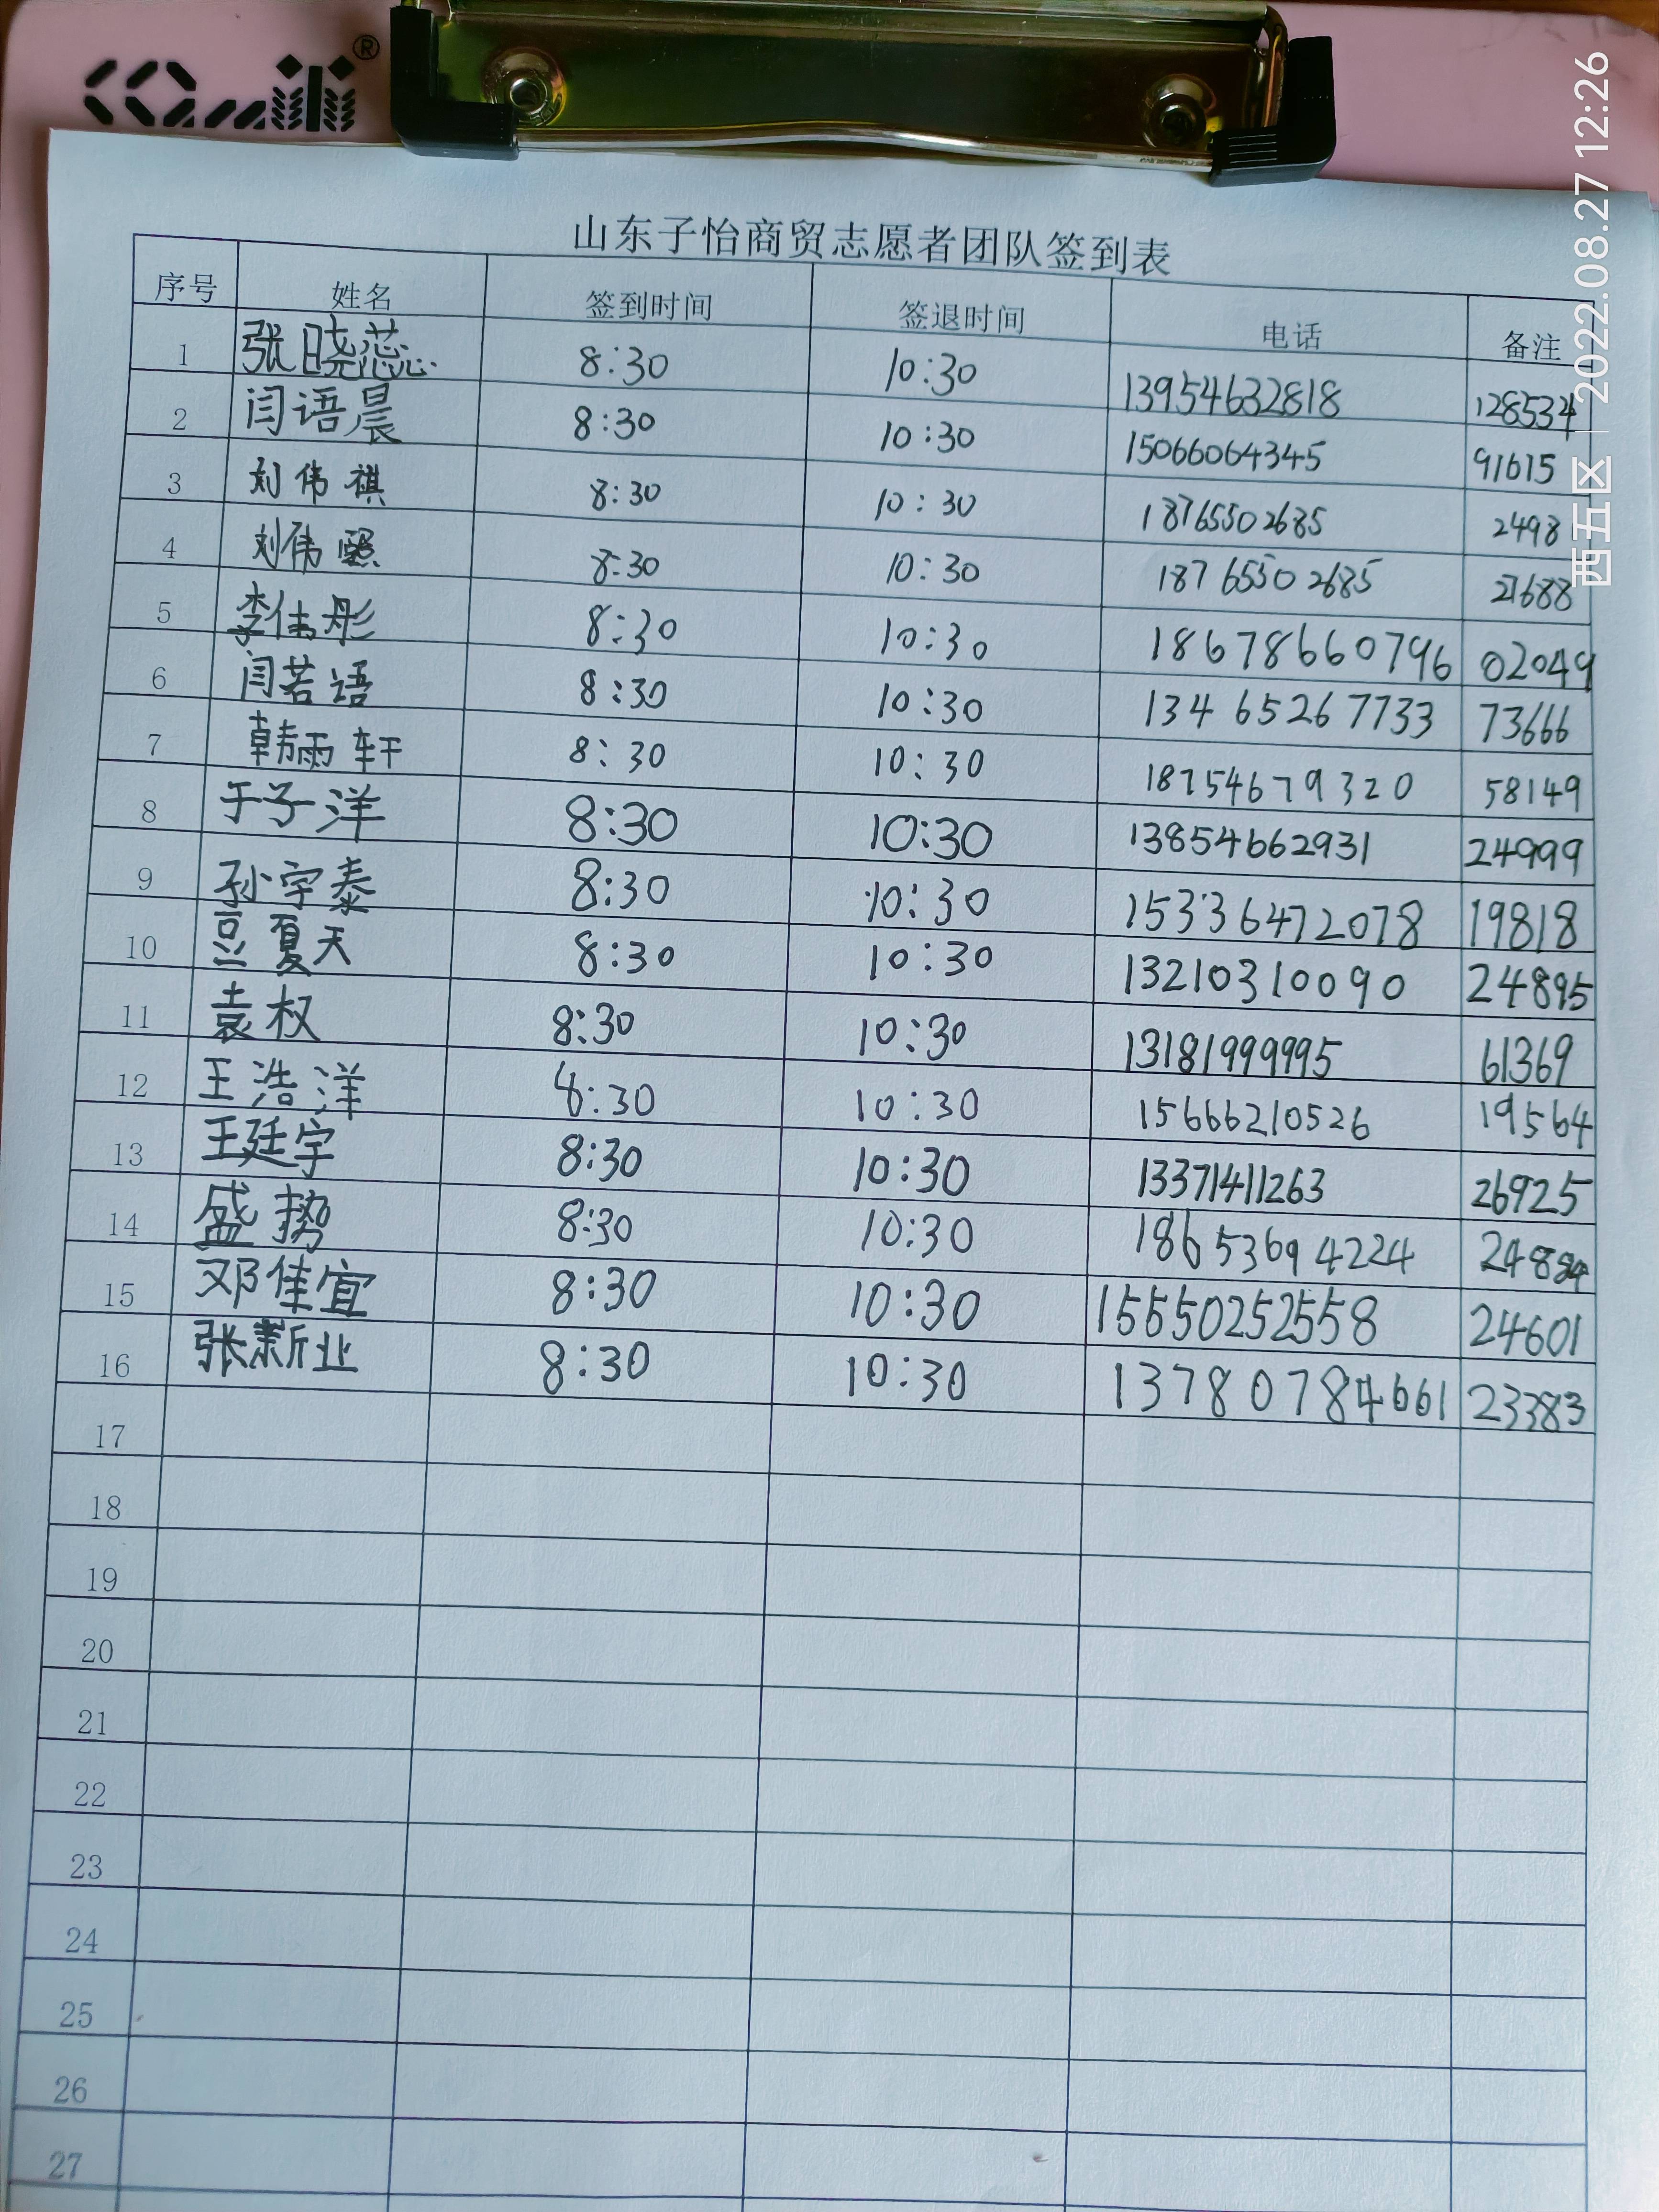 山东子怡商贸志愿者团队签到表
序号 姓名 签到时间 签退时间 电话 备注
1 张晓蕊 8:30 10:30 13954632818 128534
2 闫语晨 8:30 10:30 15066064345 91615
3 刘伟祺 8:30 10:30 18765502685 2498
4 刘伟熙 8:30 10:30 18765502685 21688
5 李伟彤 8:30 10:30 18678660796 02049
6 闫若语 8:30 10:30 13465267733 73666
7 韩雨轩 8:30 10:30 18754679320 58149
8 于子洋 8:30 10:30 13854662931 24999
9 孙宇泰 8:30 10:30 15336472078 19818
10 豆夏天 8:30 10:30 13210310090 24895
11 袁权 8:30 10:30 13181999995 61369
12 王浩洋 8:30 10:30 15666210526 19564
13 王廷宇 8:30 10:30 13371411263 26925
14 盛势 8:30 10:30 18653694224
15 邓佳宜 8:30 10:30 15550252558 24601
16 张新业 8:30 10:30 13780784661 23383
17
18
19
20
21
22
23
24
25
26
27
西五区 | 2022.08.27 12:26